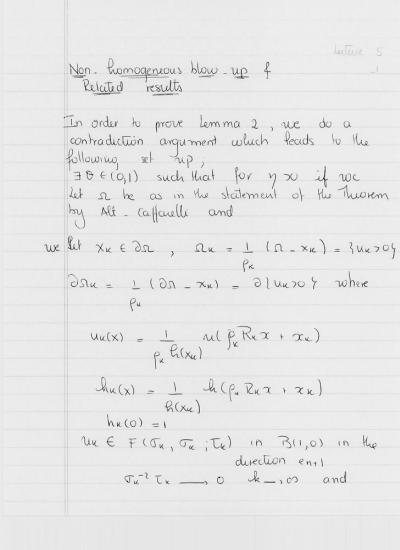 Lecture 5
-1
Non-homogeneous blow-up &
Related results
In order to prove Lemma 2, we do a
contradiction argument which leads to the
following set up,
∃ θ ∈ (0,1) such that for η >0 if we
let Ω be as in the statement of the Theorem
by Alt-Caffarelli and
we let xₖ ∈ ∂Ω , Ωₖ = 1/ρₖ (Ω - xₖ) = {uₖ>0}
∂Ωₖ = 1/ρₖ (∂Ω - xₖ) = ∂{uₖ>0} where
uₖ(x) = 1/(ρₖ h(xₖ)) u(ρₖ Rₖ x + xₖ)
hₖ(x) = 1/h(xₖ) h(ρₖ Rₖ x + xₖ)
hₖ(0) = 1
uₖ ∈ F(σₖ, σₖ; τₖ) in B(1,0) in the
direction eₙ₊₁
σₖ⁻² τₖ → 0 k → ∞ and